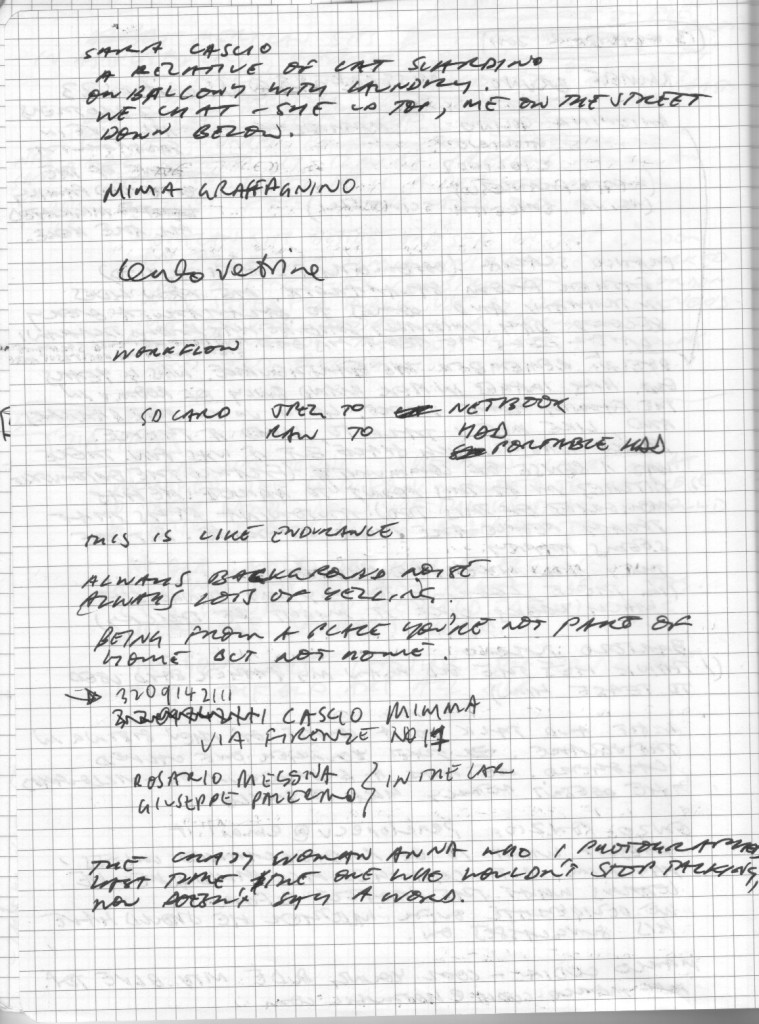 SARA CASCIO
A RELATIVE OF CAT SCARDINO
ON BALCONY WITH LAUNDRY.
WE CHAT - SHE UP TOP, ME ON THE STREET
DOWN BELOW.
MIMA GRAFFAGNINO
vetrine
WORKFLOW
SD CARD JPEG TO NETBOOK
RAW TO HDD
PORTABLE HDD
THIS IS LIKE ENDURANCE.
ALWAYS BACKGROUND NOISE
ALWAYS LOTS OF YELLING.
BEING FROM A PLACE YOU'RE NOT PART OF
HOME BUT NOT HOME.
→ 3209142111
CASCIO MIMMA
VIA FIRENZE NO 17
ROSARIO MESSINA
GIUSEPPE PALERMO } IN THE CAR
THE CRAZY WOMAN ANNA WHO I PHOTOGRAPHED
LAST TIME, THE ONE WHO WOULDN'T STOP TALKING,
NOW DOESN'T SAY A WORD.